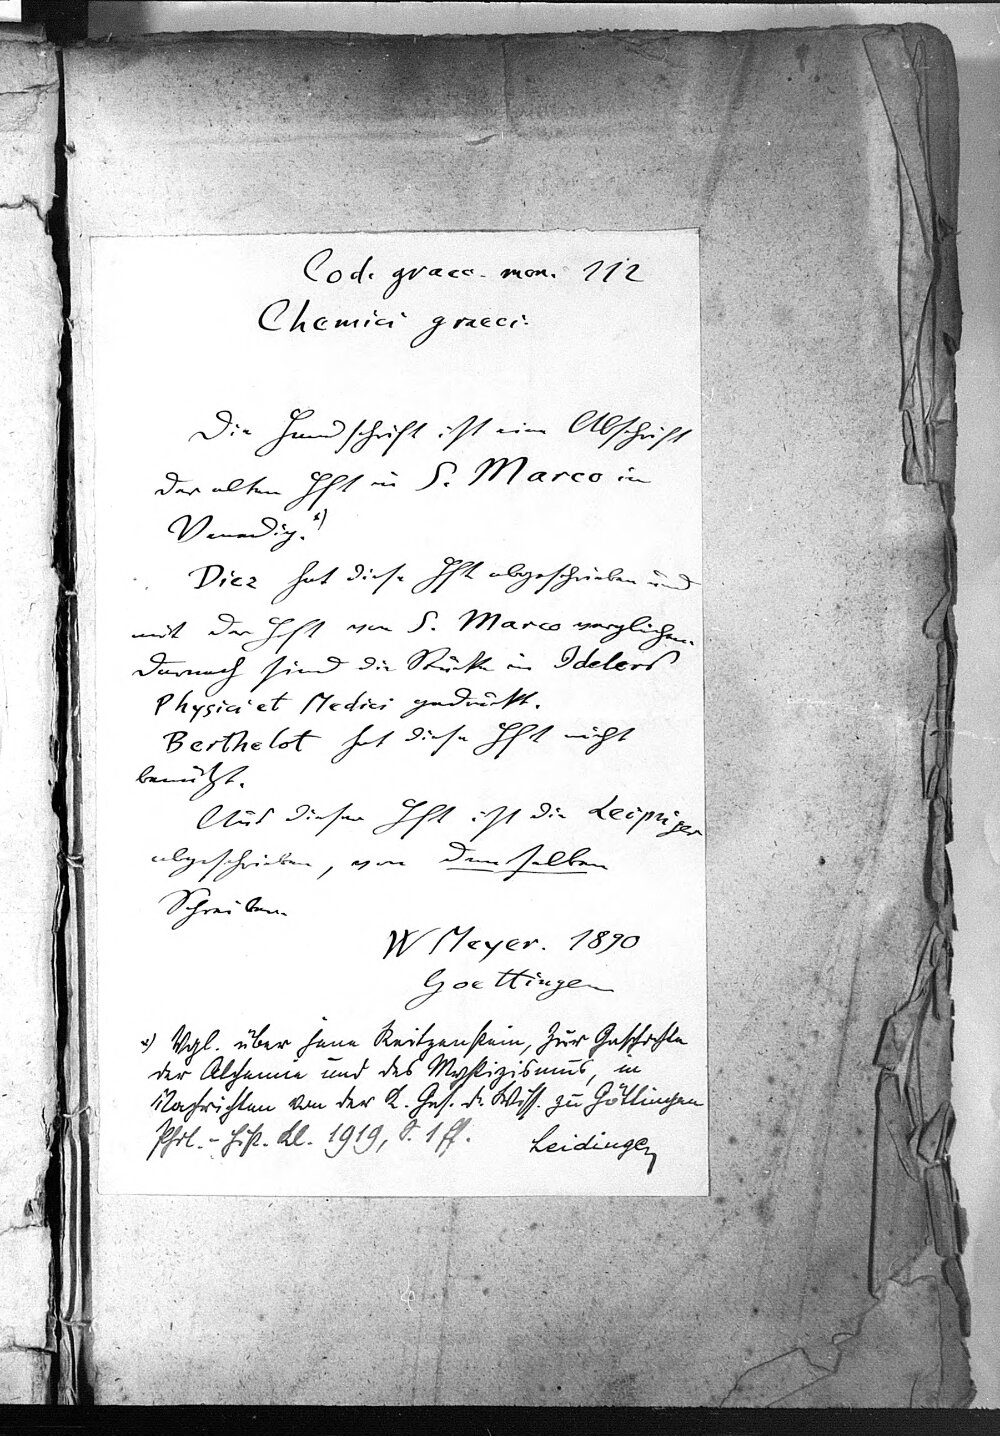 Cod. graec. mon. 112
Chemici graeci.
Die Handschrift ist eine Abschrift
der alten Hft in S. Marco in
Venedig.*)
Diez hat diese Hft abgeschrieben und
mit der Hft von S. Marco verglichen.
Darnach sind die Stücke in Idelers
Physici et Medici gedruckt.
Berthelot hat diese Hft nicht
benützt.
Aus dieser Hft ist die Leipziger
abgeschrieben, von demselben
Schreiber.
W Meyer. 1890
Goettingen
*) Vgl. über jene Reitzenstein, Zur Geschichte
der Alchemie und des Mystizismus, in
Nachrichten von der K. Ges. d. Wiss. zu Göttingen
Phil.-hist. Kl. 1919, S. 1 ff.
Leidinger